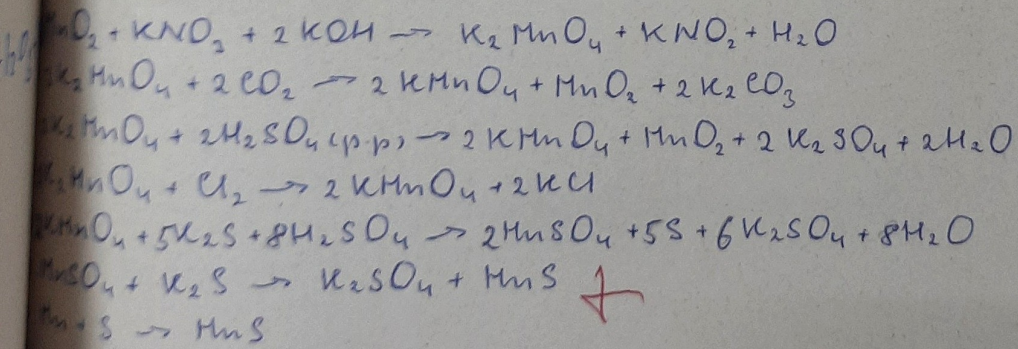 MnO₂ + KNO₃ + 2KOH → K₂MnO₄ + KNO₂ + H₂O
K₂MnO₄ + 2CO₂ → 2KMnO₄ + MnO₂ + 2K₂CO₃
K₂MnO₄ + 2H₂SO₄(р-р) → 2KMnO₄ + MnO₂ + 2K₂SO₄ + 2H₂O
K₂MnO₄ + Cl₂ → 2KMnO₄ + 2KCl
2KMnO₄ + 5K₂S + 8H₂SO₄ → 2MnSO₄ + 5S + 6K₂SO₄ + 8H₂O
MnSO₄ + K₂S → K₂SO₄ + MnS
Mn + S → MnS